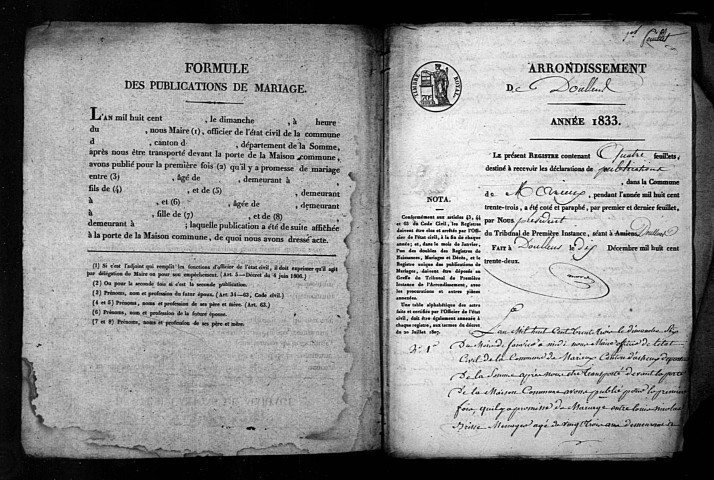 FORMULE
DES PUBLICATIONS DE MARIAGE.
L'AN mil huit cent , le dimanche , à heure
du , nous Maire (1), officier de l'état civil de la commune
d , canton d , département de la Somme,
après nous être transporté devant la porte de la Maison commune,
avons publié pour la première fois (2) qu'il y a promesse de mariage
entre (3) , âgé de , demeurant à ,
fils de (4) , et de (5) , demeurant
à , et (6) , âgée de , demeurant
à , fille de (7) , et de (8)
demeurant à ; laquelle publication a été de suite affichée
à la porte de la Maison commune, de quoi nous avons dressé acte.
(1) Si c'est l'adjoint qui remplit les fonctions d'officier de l'état civil, il doit exprimer qu'il agit
par délégation du Maire ou pour son empêchement. (Art. 5—Décret du 4 juin 1806.)
(2) Ou pour la seconde fois si c'est la seconde publication.
(3) Prénoms, nom et profession du futur époux. (Art. 34—63, Code civil.)
(4 et 5) Prénoms, nom et profession de ses père et mère. (Art. 63.)
(6) Prénoms, nom et profession de la future épouse.
(7 et 8) Prénoms, nom et profession de ses père et mère.
1er feuillet
TIMBRE ROYAL
ARRONDISSEMENT
De Doullens
ANNÉE 1833.
LE présent REGISTRE contenant Quatre feuillets,
destiné à recevoir les déclarations de publications
, dans la Commune
de Marieux, pendant l'année mil huit cent
trente-trois, a été coté et paraphé, par premier et dernier feuillet,
par Nous président
du Tribunal de Première Instance, séant à Amiens Doullens
FAIT à Doullens le dix Décembre mil huit cent
trente-deux.
NOTA.
Conformément aux articles 43, 44
et 63 du Code Civil, les Registres
doivent être clos et arrêtés par l'Officier
de l'état civil, à la fin de chaque
année; et, dans le mois de Janvier,
l'un des doubles des Registres de
Naissances, Mariages et Décès, et le
Registre unique des publications de
Mariages, doivent être déposés au
Greffe du Tribunal de Première
Instance de l'Arrondissement, avec
les procurations et autres pièces
annexées.
Une table alphabétique des actes
faits et certifiés par l'Officier de l'état
civil, doit être également annexée à
chaque registre, aux termes du décret
du 20 Juillet 1807.
N° 1er
L'an Mil huit Cent trent trois le dimanche Six
Du Mois de Janvier a midi nous Maire officier de l'état
Civil de la Commune de Marieux Canton d'acheux departe
De la Somme après nous être transporté devant la porte
De la Maison Commune avons publié pour la premiere
fois, quil y a promesse de Mariage entre louis nicolas
Menager agé de vingt trois ans demeurant a